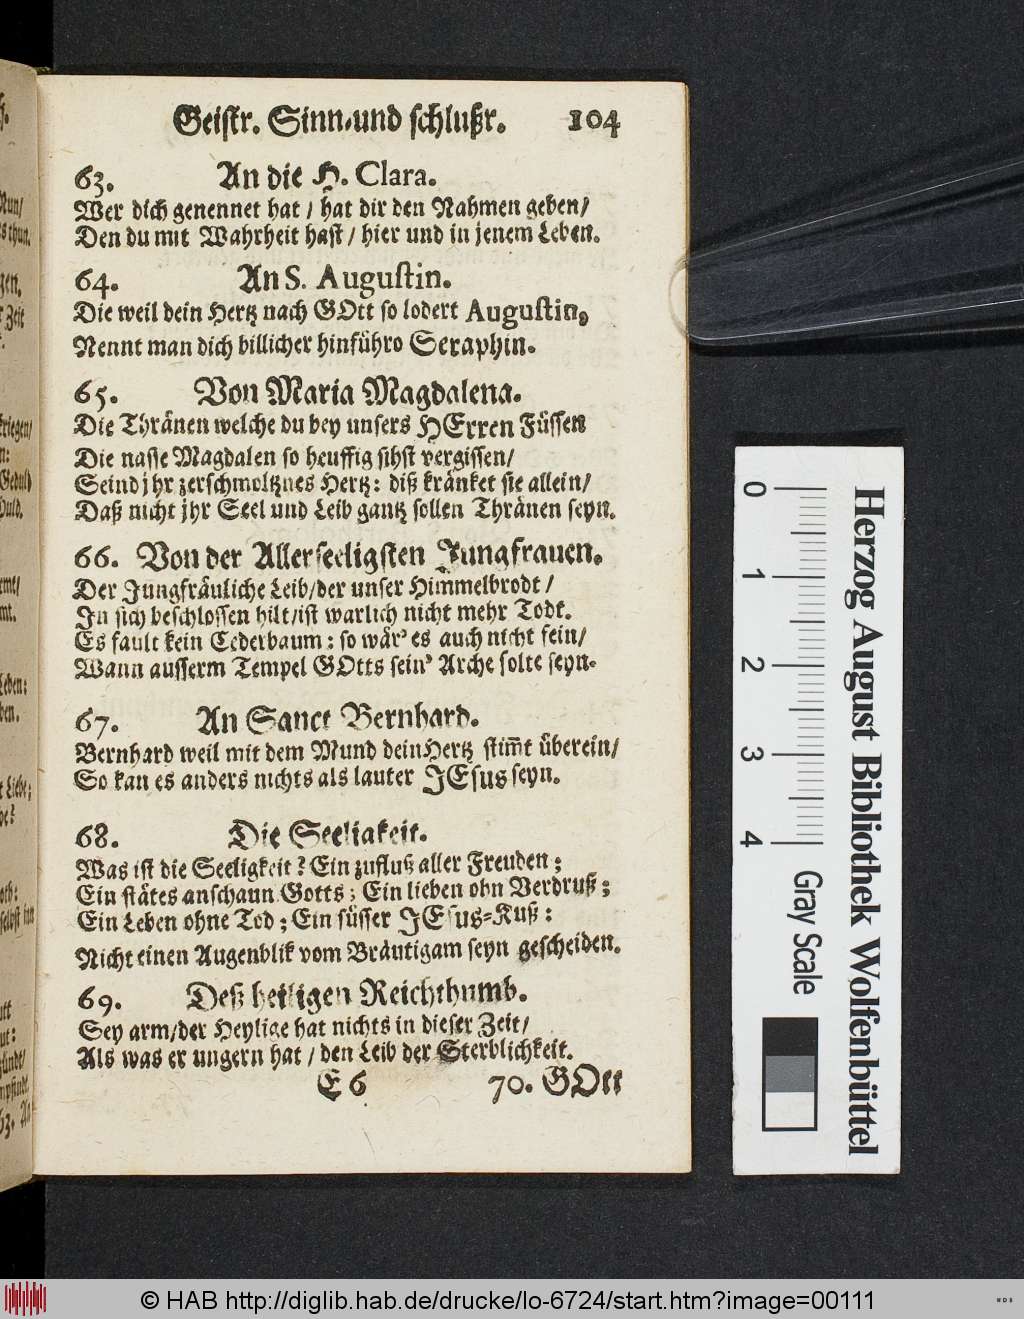 Geistr. Sinn-und schlußr. 104
63. An die H. Clara.
Wer dich genennet hat / hat dir den Nahmen geben/
Den du mit Wahrheit hast / hier und in jenem Leben.
64. An S. Augustin.
Die weil dein Hertz nach GOtt so lodert Augustin,
Nennt man dich billicher hinführo Seraphin.
65. Von Maria Magdalena.
Die Thränen welche du bey unsers HErren Füssen
Die nasse Magdalen so heuffig sihst vergissen/
Seind jhr zerschmoltznes Hertz: diß kränket sie allein/
Daß nicht jhr Seel und Leib gantz sollen Thränen seyn.
66. Von der Allerseeligsten Jungfrauen.
Der Jungfräuliche Leib/der unser Himmelbrodt /
Jn sich beschlossen hilt/ist warlich nicht mehr Todt.
Es fault kein Cederbaum: so wär' es auch nicht fein/
Wann ausserm Tempel GOtts sein' Arche solte seyn.
67. An Sanct Bernhard.
Bernhard weil mit dem Mund dein Hertz stim̃t überein/
So kan es anders nichts als lauter JEsus seyn.
68. Die Seeligkeit.
Was ist die Seeligkeit? Ein zufluß aller Freuden;
Ein stätes anschaun Gotts; Ein lieben ohn Verdruß;
Ein Leben ohne Tod; Ein süsser JEsus-Kuß:
Nicht einen Augenblik vom Bräutigam seyn gescheiden.
69. Deß heiligen Reichthumb.
Sey arm/der Heylige hat nichts in dieser Zeit/
Als was er ungern hat / den Leib der Sterblichkeit.
E 6 70. GOtt
0 1 2 3 4
Gray Scale
Herzog August Bibliothek Wolfenbüttel
© HAB http://diglib.hab.de/drucke/lo-6724/start.htm?image=00111